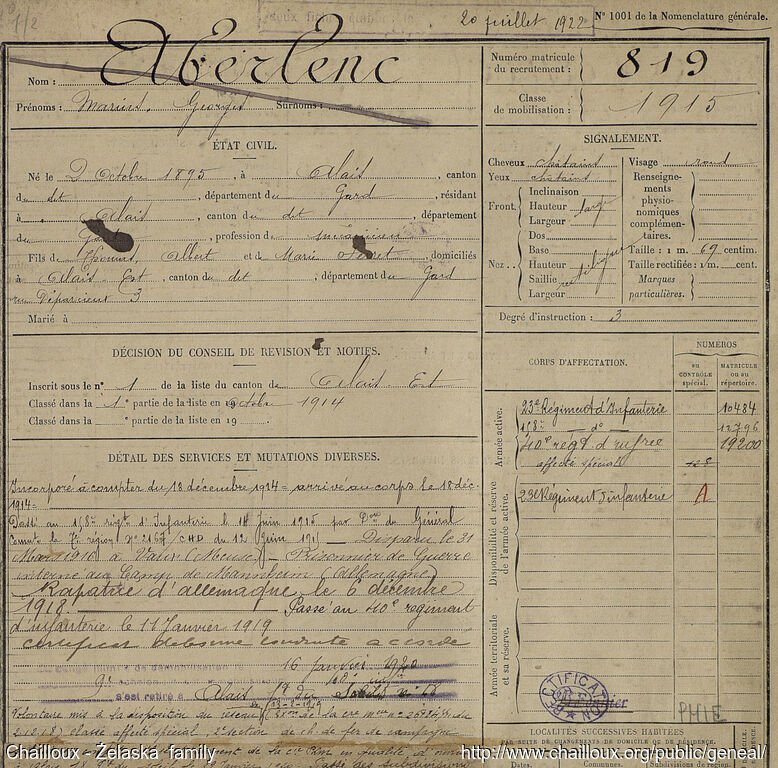 20 juillet 1922
N° 1001 de la Nomenclature générale.
Nom : Aberlenc
Prénoms : Marius, Georges Surnoms :
Numéro matricule du recrutement : 819
Classe de mobilisation : 1915
ÉTAT CIVIL.
Né le 2 Octobre 1895, à Alais, canton
du dit, département du Gard, résidant
à Alais, canton du dit, département
du Gard, profession de mécanicien
Fils de Albert et de Marie, domiciliés
à Alais-Est, canton du dit, département du Gard
rue Déparcieux 3
Marié à
SIGNALEMENT.
Cheveux châtains
Yeux châtains
Front.
Inclinaison
Hauteur large
Largeur
Nez
Dos
Base
Hauteur rectiligne
Saillie
Largeur
Visage rond
Renseignements physionomiques complémentaires.
Taille : 1 m. 69 centim.
Taille rectifiée : 1 m. cent.
Marques particulières.
Degré d'instruction : 3
DÉCISION DU CONSEIL DE REVISION ET MOTIFS.
Inscrit sous le n° 1 de la liste du canton de Alais-Est
Classé dans la 1e partie de la liste en Octobre 1914
Classé dans la partie de la liste en 19 .
CORPS D'AFFECTATION.
NUMÉROS
au CONTRÔLE spécial.
MATRICULE ou au répertoire.
Armée active.
23e Régiment d'Infanterie 10484
158e d° 12796
40e régt d'infrie 19200
affecté spécial
Disponibilité et réserve de l'armée active.
23e Régiment d'infanterie A
Armée territoriale et sa réserve.
DÉTAIL DES SERVICES ET MUTATIONS DIVERSES.
Incorporé à compter du 18 décembre 1914 = arrivé au corps le 18 déc.
1914 =
Passé au 158e régt d'Infanterie le 14 Juin 1915 par du Général
Comdt la 7e région N° 2167 du 12 Juin 1915 Disparu le 31
Mars 1916 à Vaux (Meuse) Prisonnier de Guerre
interné au Camp de Mannheim (Allemagne)
Rapatrié d'allemagne le 6 décembre
1918. Passé au 40e régiment
d'infanterie le 11 Janvier 1919
certificat de bonne conduite accordé
16 janvier 1920
s'est retiré à Alais
RECTIFICATION
PHIE
LOCALITÉS SUCCESSIVES HABITÉES
PAR SUITE DE CHANGEMENTS DE DOMICILE OU DE RÉSIDENCE.
Communes. Subdivisions de région
Chailloux - Żelaska family
http://www.chailloux.org/public/geneal/